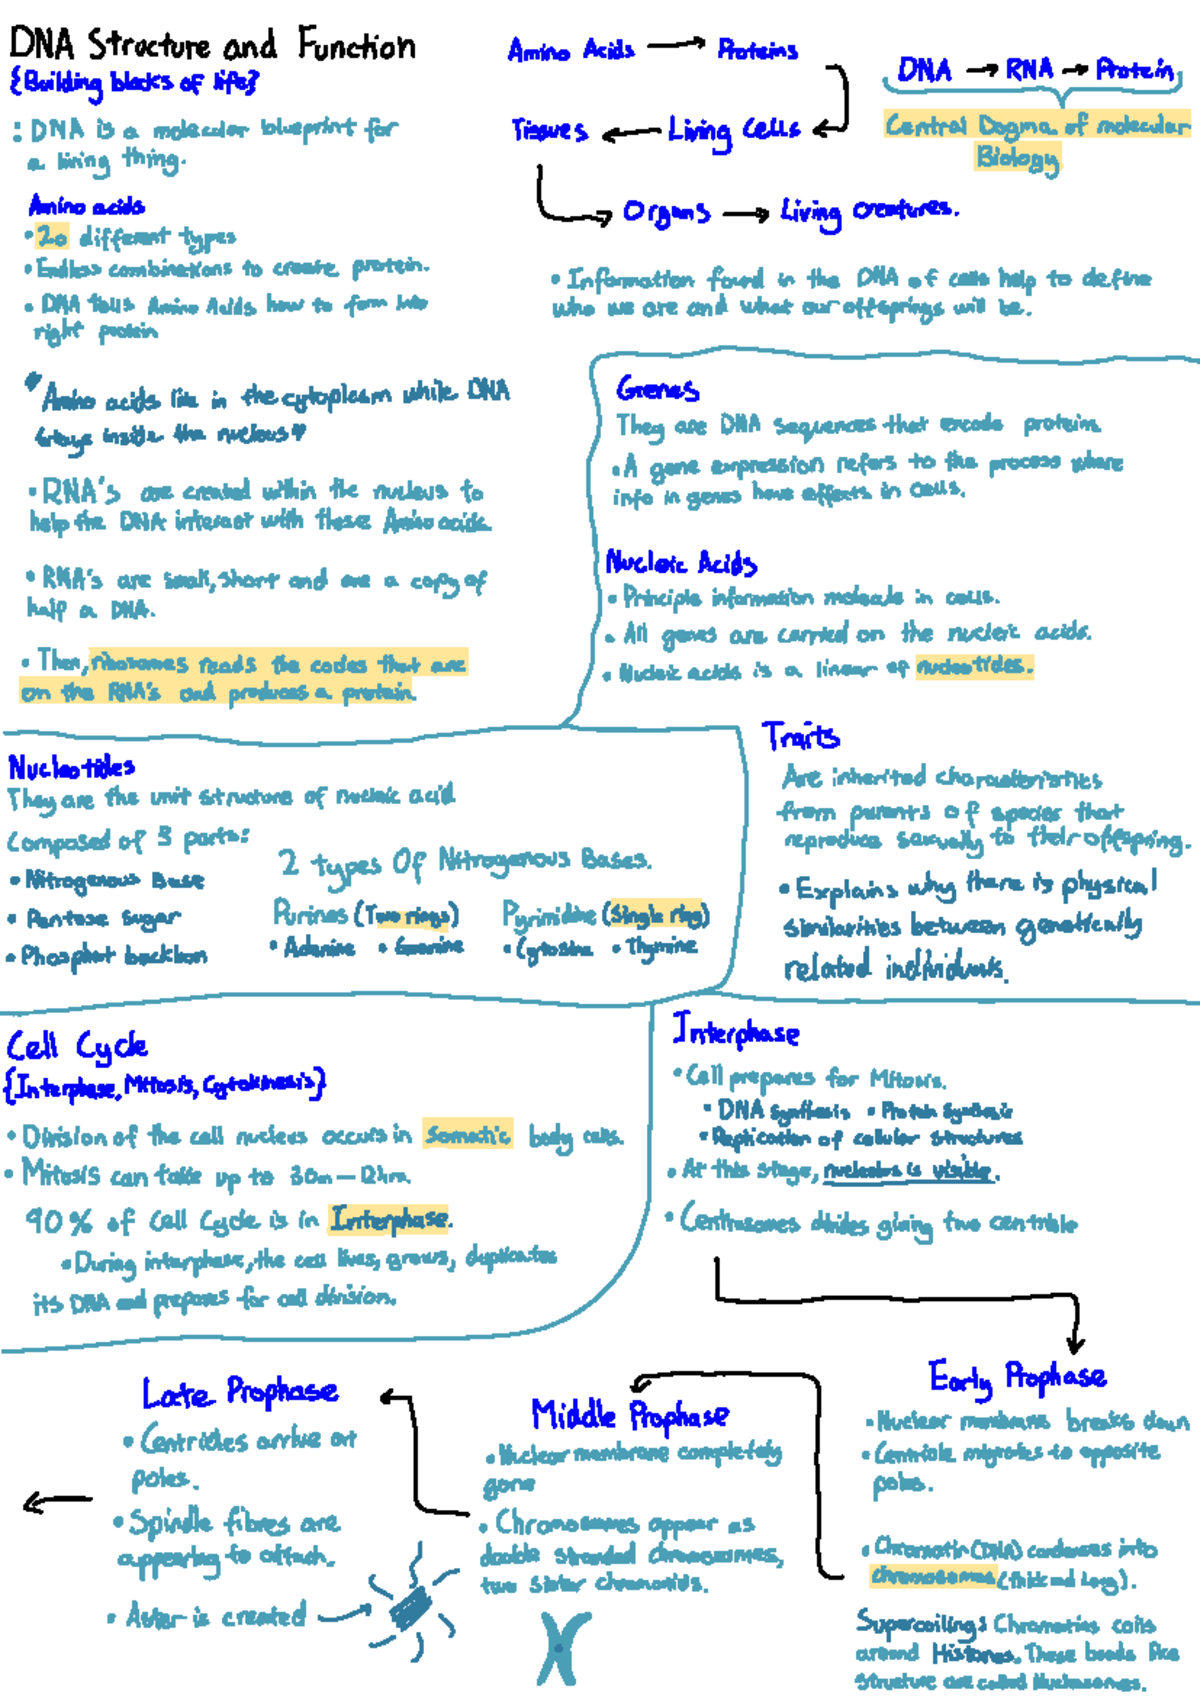 DNA Structure and Function
{Building blocks of life}
: DNA is a molecular blueprint for
a living thing.
Amino acids
• 20 different types
• Endless combinations to create protein.
• DNA tells Amino Acids how to form into
right protein
Amino Acids → Proteins
Tissues ← Living Cells
Organs → Living creatures.
DNA → RNA → Protein
Central Dogma of molecular
Biology
• Information found in the DNA of cells help to define
who we are and what our offsprings will be.
"Amino acids lie in the cytoplasm while DNA
stays inside the nucleus"
• RNA's are created within the nucleus to
help the DNA interact with these Amino acids.
• RNA's are small, short and are a copy of
half a DNA.
• Then, ribosomes reads the codes that are
on the RNA's and produces a protein.
Genes
They are DNA sequences that encode protein.
• A gene expression refers to the process where
info in genes have effects in cells.
Nucleic Acids
• Principle information molecule in cells.
• All genes are carried on the nucleic acids.
• Nucleic acids is a linear of nucleotides.
Nucleotides
They are the unit structure of nucleic acid
Composed of 3 parts:
• Nitrogenous Base
• Pentose Sugar
• Phosphat backbon
2 types Of Nitrogenous Bases.
Purines (Two rings)
• Adenine • Guanine
Pyrimidine (Single ring)
• Cytosine • Thymine
Traits
Are inherited characteristics
from parents of species that
reproduce sexually to their offspring.
• Explains why there is physical
similarities between genetically
related individuals.
Cell Cycle
{Interphase, Mitosis, Cytokinesis}
• Division of the cell nucleus occurs in somatic body cells.
• Mitosis can take up to 30m - 12hrs.
90% of Cell Cycle is in Interphase.
• During interphase, the cell lives, grows, duplicates
its DNA and prepares for cell division.
Interphase
• Cell prepares for Mitosis.
• DNA synthesis • Protein Synthesis
• Replication of cellular structures
• At this stage, nucleolus is visible.
• Centrosomes divides giving two centriole
Early Prophase
• Nuclear membrane breaks down
• Centriole migrates to opposite
poles.
• Chromatin (DNA) condenses into
chromosomes (thick and long).
Supercoiling: Chromatins coils
around Histones. These beads like
structure are called Nucleosomes.
Middle Prophase
• Nuclear membrane completely
gone
• Chromosomes appear as
double stranded chromosomes,
two sister chromatids.
Late Prophase
• Centrioles arrive at
poles.
• Spindle fibres are
appearing to attach.
• Aster is created